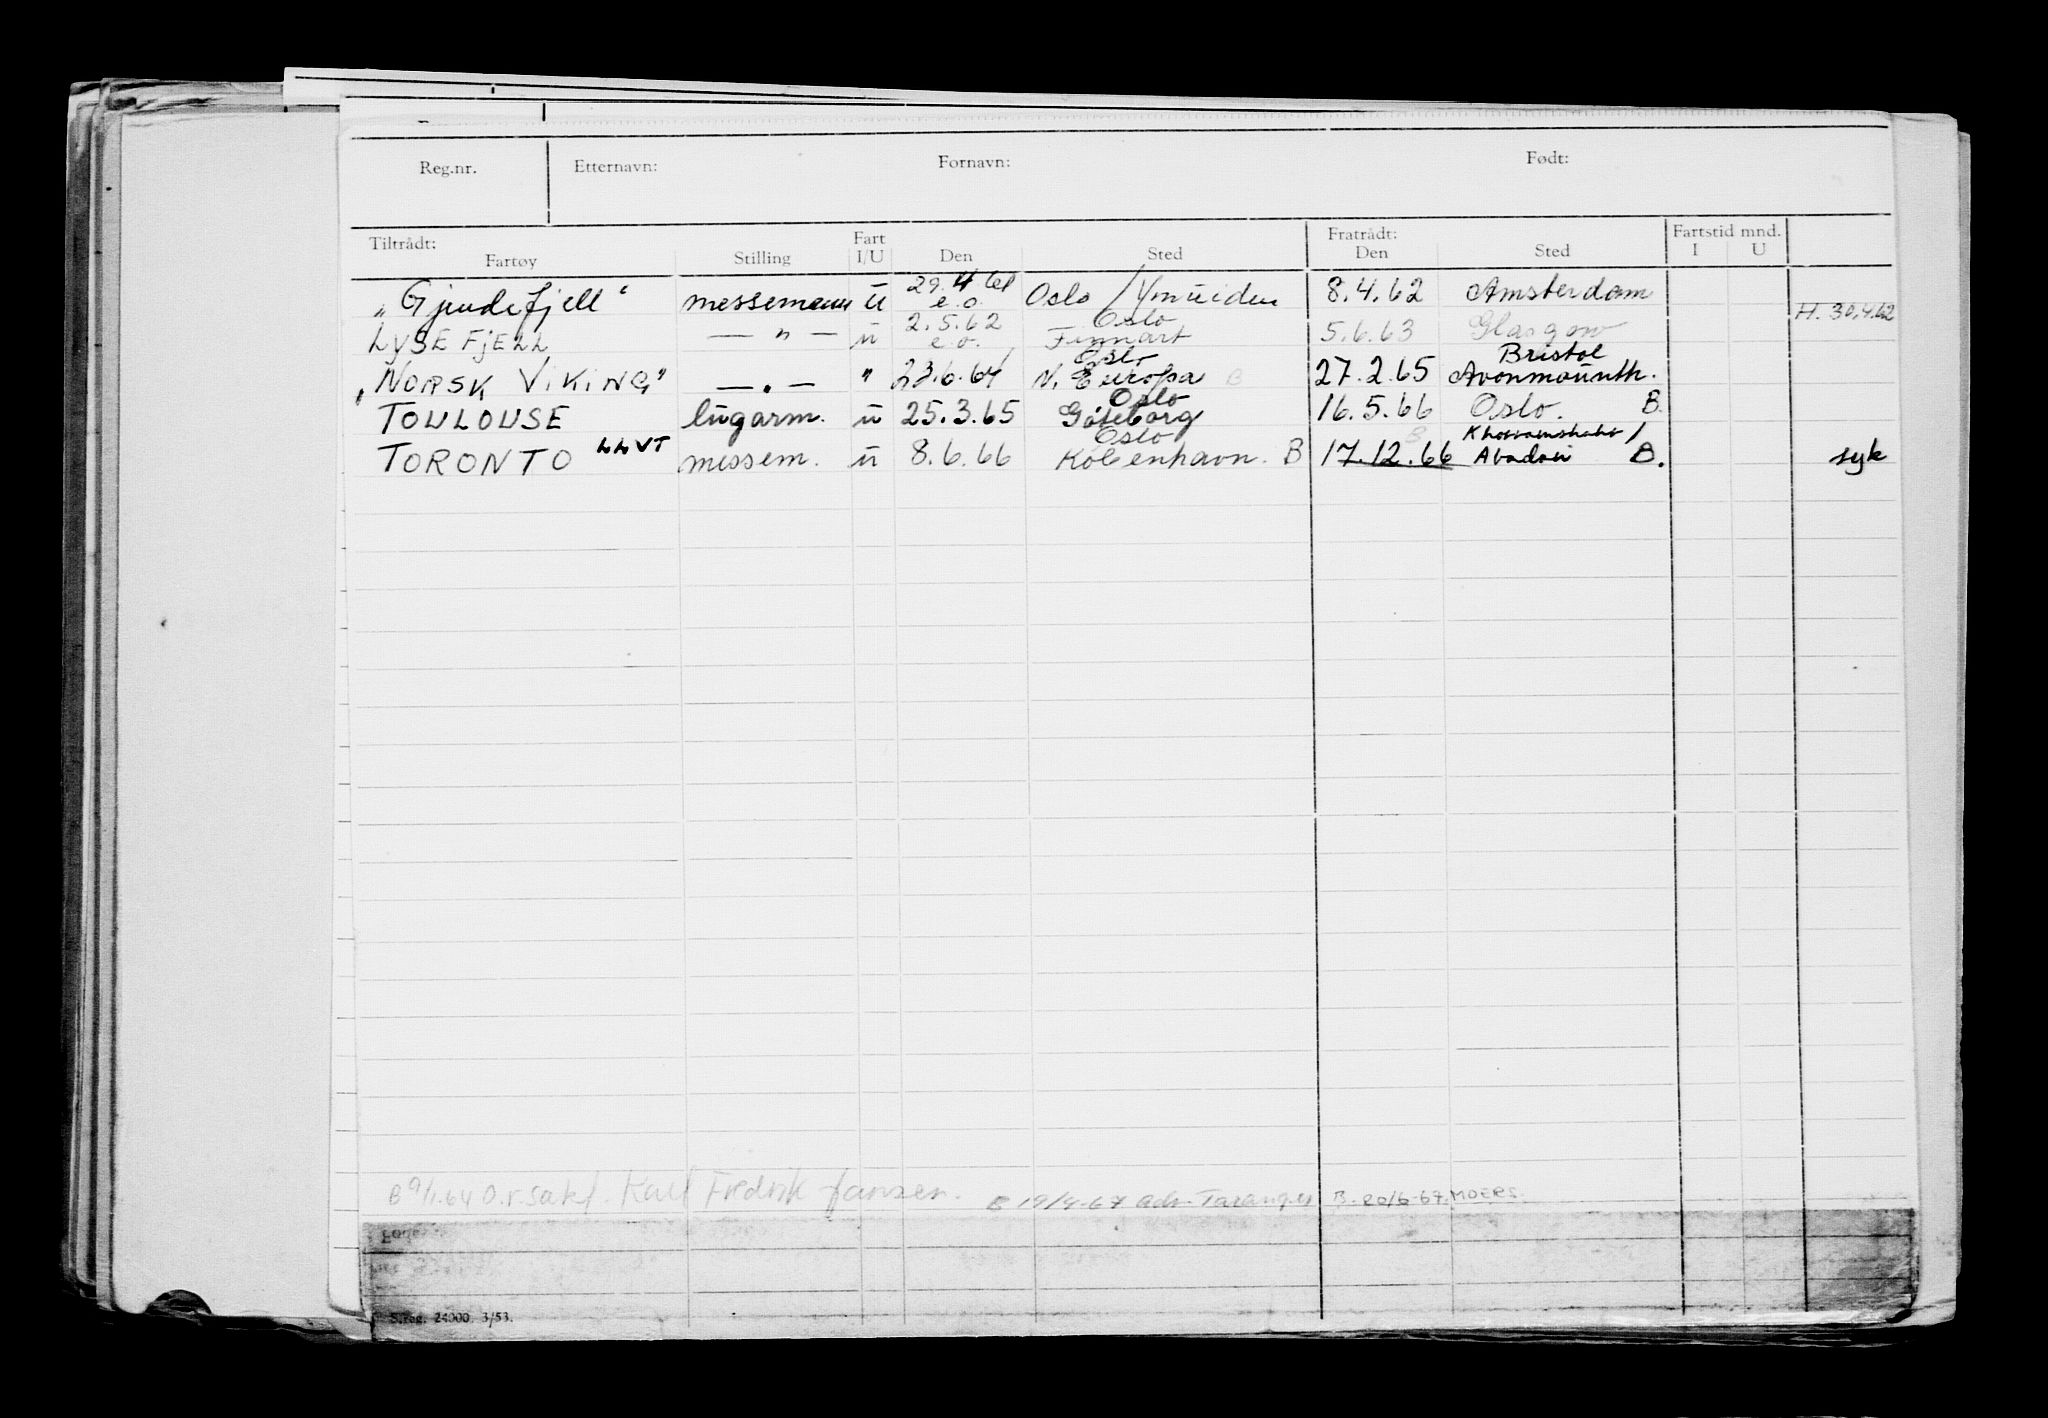 Reg.nr. Etternavn: Fornavn: Født:
Tiltrådt: Fratrådt: Fartstid mnd.
Fartøy Stilling Fart I/U Den Sted Den Sted I U
"Gjendefjell" messemann u 29.4 61 e.o. Oslo / Ymuiden 8.4.62 Amsterdam H. 30.4.62
LYSEFJELL — " — u 2.5.62 e.o. Oslo Finnart 5.6.63 Glasgow
"NORSK VIKING" — " — " 23.6.64 Oslo N. Europa B 27.2.65 Bristol Avonmounth.
TOULOUSE lugarm. u 25.3.65 Oslo Gøteborg 16.5.66 Oslo. B.
TORONTO LLVT messem. u 8.6.66 Oslo København. B 17.12.66 Khorramshahr / Abadan B. syk
B 9/1.64 O.r.sakf. Karl Fredrik Jansen. B 19/4-67 adr. Taranger B. 20/6-67. MOERS.
S.reg. 24000. 3/53.